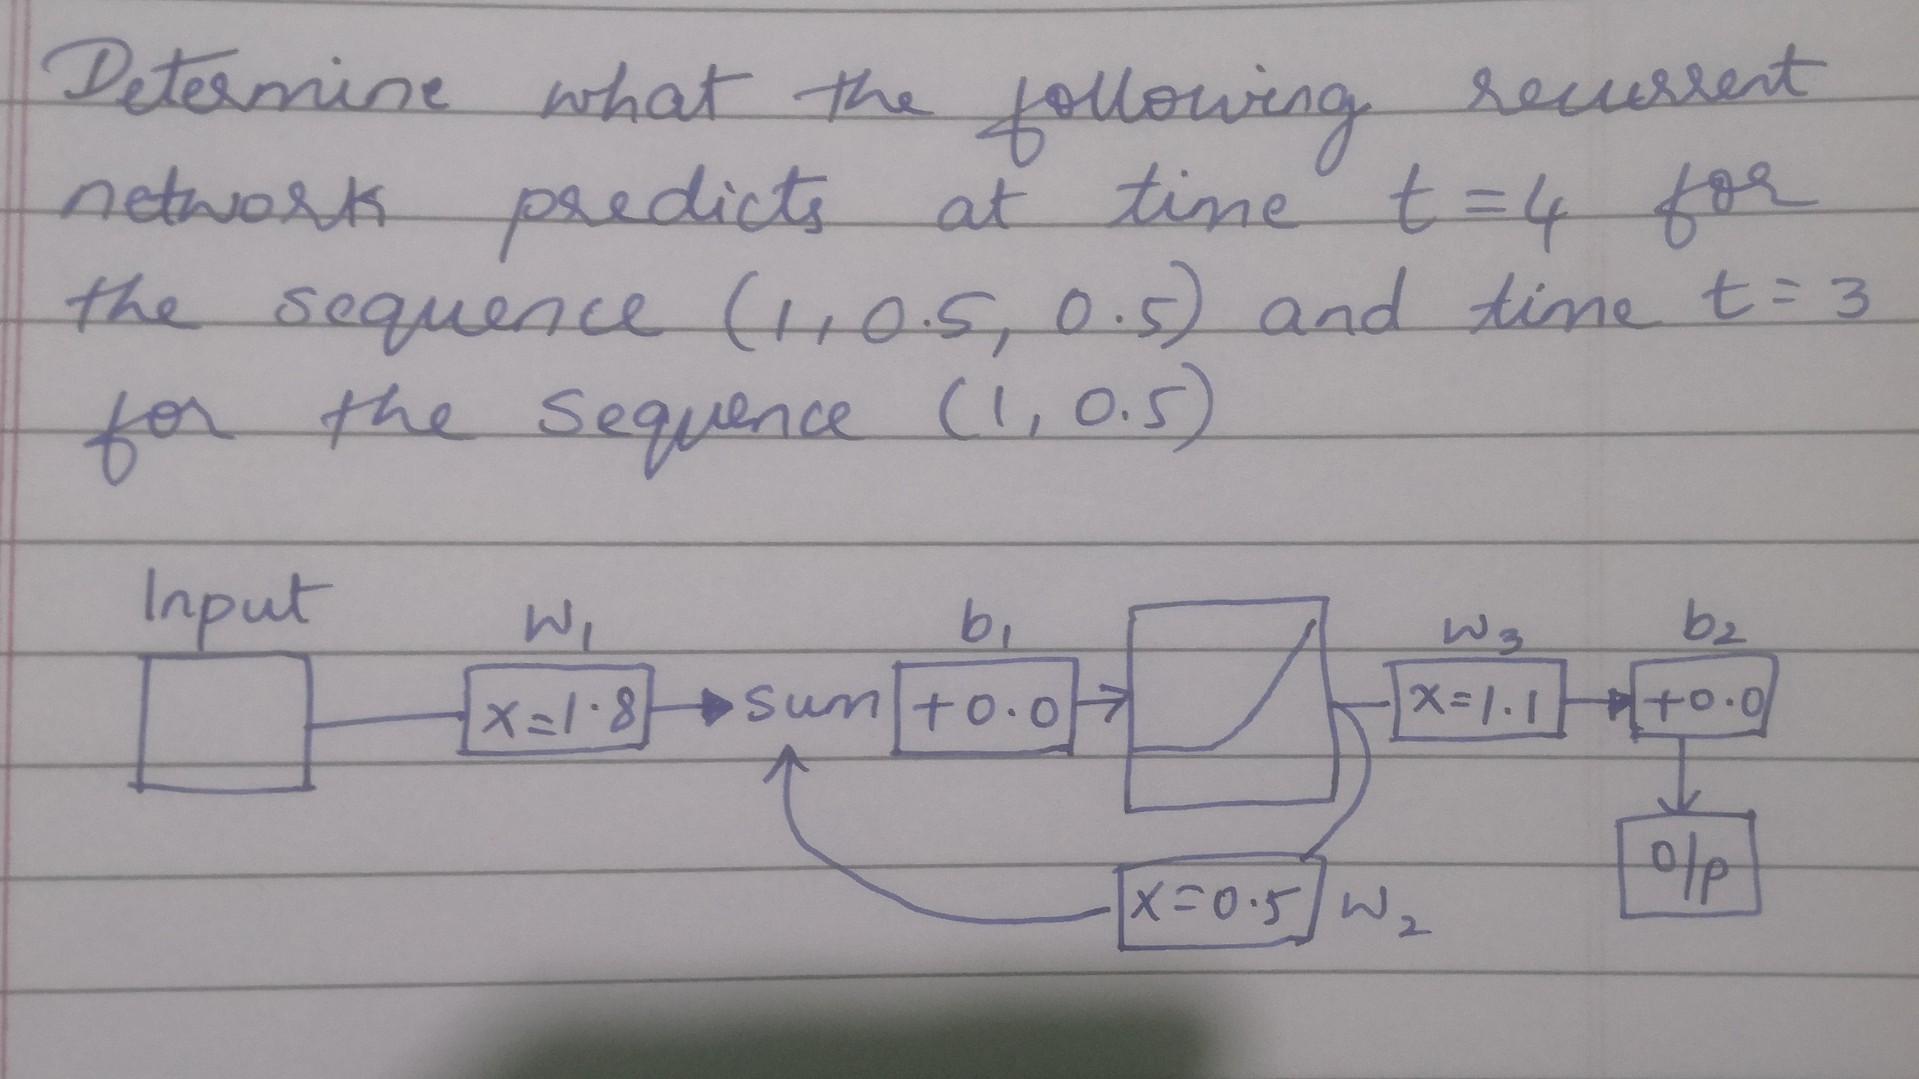 Determine what the following recurrent
network predicts at time t=4 for
the sequence (1, 0.5, 0.5) and time t=3
for the sequence (1, 0.5)
Input W1 b1 W3 b2
x=1.8 sum +0.0 x=1.1 +0.0
O/p
x=0.5 W2